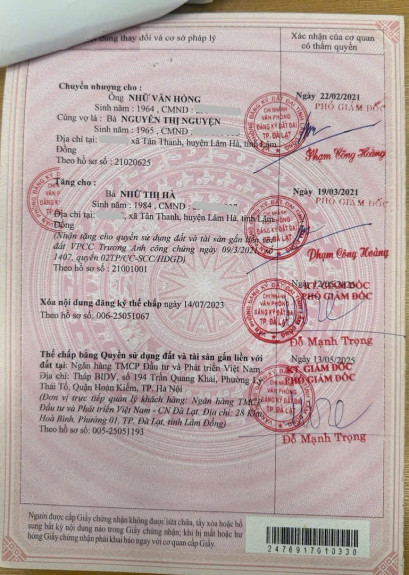 dung thay đổi và cơ sở pháp lý
Xác nhận của cơ quan
có thẩm quyền
Chuyển nhượng cho :
Ông NHỮ VĂN HỒNG
Sinh năm : 1964, CMND :
Cùng vợ là : Bà NGUYỄN THỊ NGUYỆN
Sinh năm : 1965, CMND :
Địa chỉ tại: , xã Tân Thanh, huyện Lâm Hà, tỉnh Lâm
Đồng
Theo hồ sơ số : 21020625
Ngày 22/02/2021
PHÓ GIÁM ĐỐC
CHI NHÁNH
VĂN PHÒNG
ĐĂNG KÝ ĐẤT ĐAI
TP. ĐÀ LẠT
Phạm Công Hoàng
Tặng cho :
Bà NHỮ THỊ HÀ
Sinh năm : 1984, CMND :
Địa chỉ tại: , xã Tân Thanh, huyện Lâm Hà, tỉnh Lâm
Đồng
(Nhận tặng cho quyền sử dụng đất và tài sản gắn liền
đất VPCC Trương Anh công chứng ngày 09/3/20
1407, quyển 02TP/CC-SCC/HĐGD)
Theo hồ sơ số : 21001001
Ngày 19/03/2021
PHÓ GIÁM ĐỐC
Phạm Công Hoàng
Xóa nội dung đăng ký thế chấp ngày 14/07/2023
Theo hồ sơ số : 006-25051067
Ngày 12/05/2025
KT. GIÁM ĐỐC
PHÓ GIÁM ĐỐC
CHI NHÁNH
VĂN PHÒNG
ĐĂNG KÝ ĐẤT ĐAI
TP. ĐÀ LẠT
Đỗ Mạnh Trọng
Thế chấp bằng Quyền sử dụng đất và tài sản gắn liền với
đất tại: Ngân hàng TMCP Đầu tư và Phát triển Việt Nam,
Địa chỉ: Tháp BIDV, số 194 Trần Quang Khải, Phường Lý
Thái Tổ, Quận Hoàn Kiếm, TP. Hà Nội
(Đơn vị trực tiếp quản lý khách hàng: Ngân hàng TMCP
Đầu tư và Phát triển Việt Nam - CN Đà Lạt. Địa chỉ: 28 Khu
Hoà Bình, Phường 01, TP. Đà Lạt, tỉnh Lâm Đồng)
Theo hồ sơ số : 005-25051193
Ngày 13/05/2025
KT. GIÁM ĐỐC
PHÓ GIÁM ĐỐC
Đỗ Mạnh Trọng
Người được cấp Giấy chứng nhận không được sửa chữa, tẩy xóa hoặc bổ
sung bất kỳ nội dung nào trong Giấy chứng nhận; khi bị mất hoặc hư
hỏng Giấy chứng nhận phải khai báo ngay với cơ quan cấp Giấy.
2476917010330